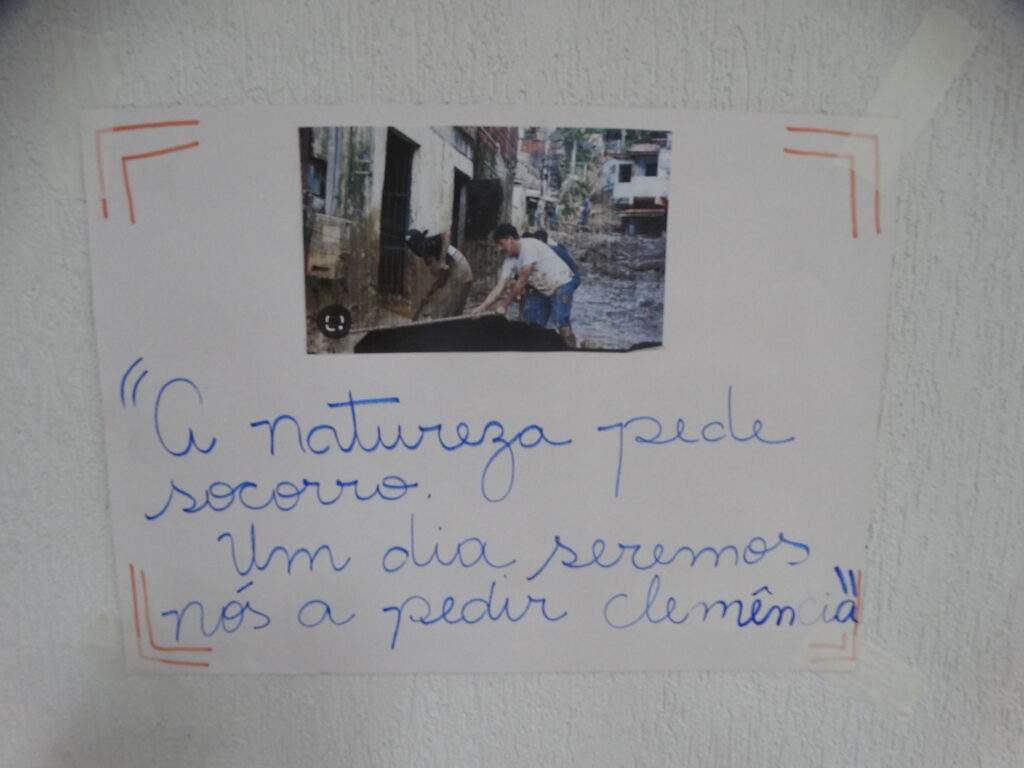 “A natureza pede
socorro.
Um dia seremos
nós a pedir clemência”